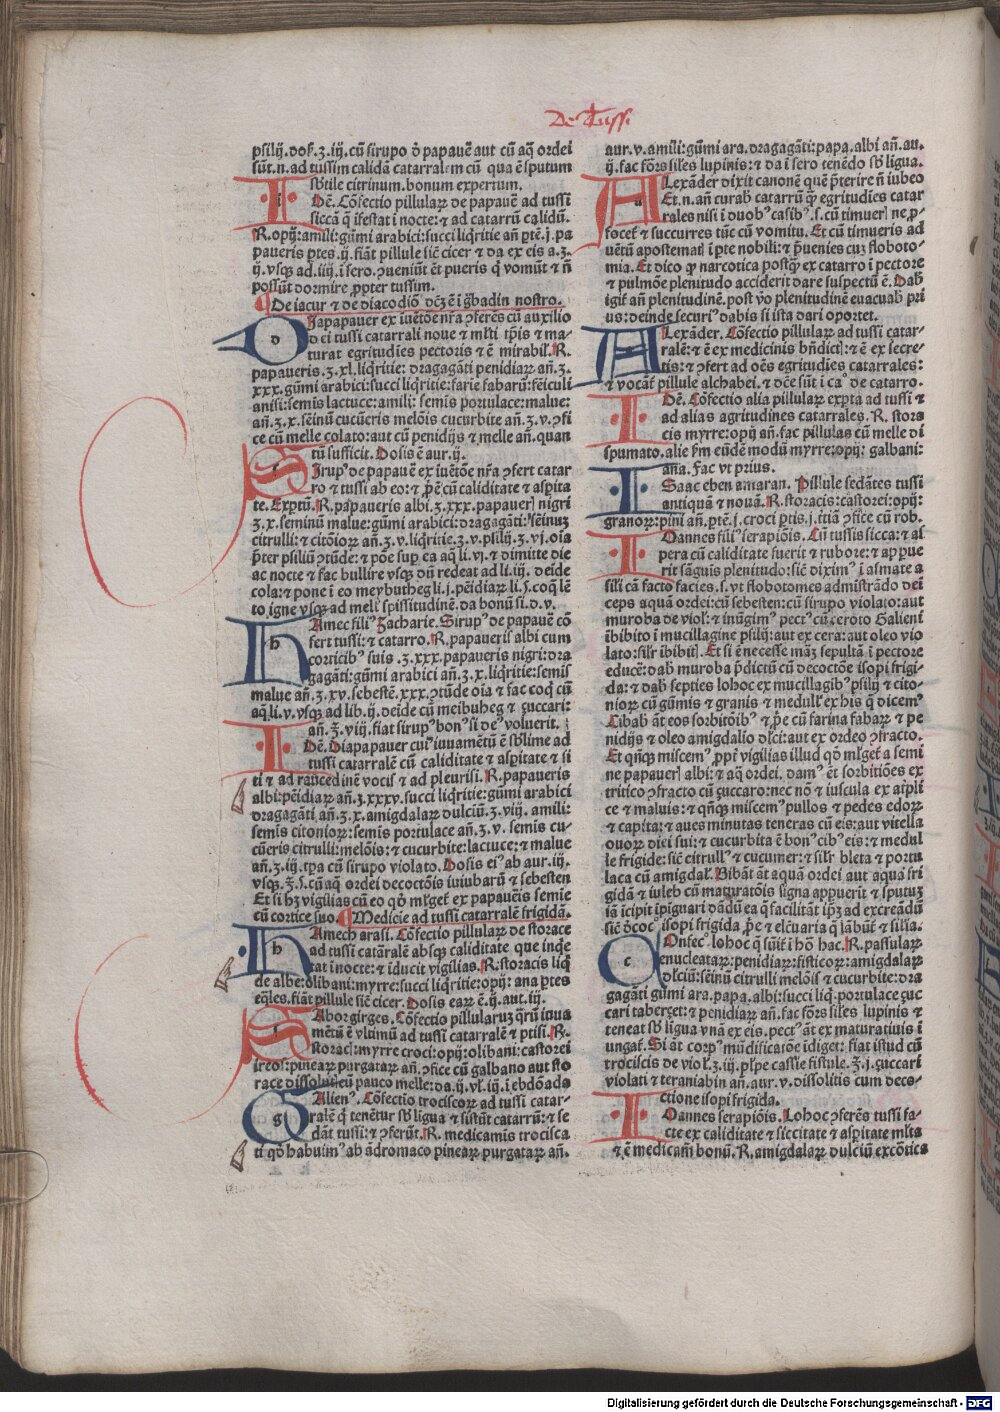 De Tussi
psilij. dos̄. ʒ. iij. cū sirupo ð papaue᷒ aut cū aq̄ ordei
sūt. n. ad tussim calidā catarralem cū qua ē sputum
sbtile citrinum. bonum expertum.
IDē. Cōfectio pillularꝝ de papaue᷒ ad tussi
siccā q̄ ifestat i nocte: ⁊ ad catarrū calidū.
℞. opij: amili: gūmi arabici: succi liq̄ritie añ. ptē. j. pa
paueris ptes. ij. fiāt pillule siē cicer ⁊ da ex eis a. ʒ.
ij. vsq̄ ad. iiij. i sero. ꝯueniūt ēt pueris q̄ vomūt ⁊ ñ
possūt dormire ꝓpter tussim.
De iacur ⁊ de diacodiō dc̄ȝ ē i grabadin nostro.
DIapapauer ex iuētōe nr̄a ꝯferēs cū auxilio
dei tussi catarrali noue ⁊ ml̄ti tp̄is ⁊ ma-
turat egritudies pectoris ⁊ ē mirabil̄. ℞.
papaueris. ʒ. xl. liq̄ritie: dragagāti penidiarꝝ añ. ʒ.
xxx. gūmi arabici: succi liq̄ritie: farie fabarū: feniculi
anisi: semis lactuce: amili: semis portulace: malue:
añ. ʒ. x. seīnū cucūeris melōis cucurbite añ. ʒ. v. ꝯfi
ce cū melle colato: aut cū penidijs ⁊ melle añ. quan
tū sufficit. Dosis ē aur. ij.
SIrupꝰ de papaue᷒ ex iuētōe nr̄a ꝯfert catar
ro ⁊ tussi ab eo: ⁊ p̄rē cū caliditate ⁊ aspita
te. Exptū. ℞. papaueris albi. ʒ. xxx. papauer᷒ nigri
ʒ. x. seminū malue: gūmi arabici: dragagāti: seīnuȝ
citrulli: ⁊ citōiorꝝ añ. ʒ. v. liq̄ritie. ʒ. v. psilij. ʒ. vj. oīa
p̄ter psiliū ꝯtūde: ⁊ pōe sup ea aq̄ li. vj. ⁊ dimitte die
ac nocte ⁊ fac bullire vsq̄ dū redeat ad li. iij. deide
cola: ⁊ pone i eo meybutheg li. j. pēidiarꝝ li. s. coq̄ lē
to igne vsq̄ ad mel᷒ spissitudinē. da bonū si. d. v.
HAmec filiꝰ Zacharie. Sirupꝰ de papaue᷒ cō
fert tussi: ⁊ catarro. ℞. papaueris albi cum
corticibꝰ suis. ʒ. xxx. papaueris nigri: dra
gagāti: gūmi arabici añ. ʒ. x. liq̄ritie: semis
malue añ. ʒ. xv. sebestē. xxx. ꝯtūde oīa ⁊ fac coq̄ cū
aq̄ li. v. vsq̄ ad lib. ij. deīde cū meibuheg ⁊ ȝuccari:
añ. ʒ. viij. fiat sirupꝰ bonꝰ si deꝰ voluerit.
IDē. Diapapauer cuiꝰ iuuamētū ē sblime ad
tussi catarralē cū caliditate ⁊ aspitate ⁊ si
ti ⁊ ad raucedinē vocis ⁊ ad pleurisī. ℞. papaueris
albi: pēidiarꝝ añ. ʒ. xxxv. succi liq̄ritie: gūmi arabici
dragagāti añ. ʒ. x. amigdalarꝝ dulciū. ʒ. viij. amili:
semis citoniorꝝ: semis portulace añ. ʒ. v. semis cu-
cūeris citrulli: melōis: ⁊ cucurbite: lactuce: ⁊ malue
añ. ʒ. iij. tpa cū sirupo violato. Dosis eiꝰ ab aur. iij.
vsq̄. ℥. s. cū aq̄ ordei decoctōis iuiubarū ⁊ sebesten
Et si hȝ vigilias cū eo qð mr̄get᷒ ex papaueris semie
cū cortice suo. Medicie ad tussi catarralē frigidā.
HAmech arasi. Cōfectio pillularꝝ de storace
ad tussi catarālē absq̄ caliditate que inde
tat i nocte: ⁊ īducit vigilias. ℞. storacis liq̄
de albe: olibani: myrre: succi liq̄ritie: opij: ana p̄tes
eq̄les. fiāt pillule siē cicer. Dosis earꝝ ē. ij. aut. iij.
SAborgirges. Cōfectio pillularuȝ q̄rū iuua
mētū ē vltimū ad tussi catarralē ⁊ ptisī. ℞.
storac᷒: myrre croci: opij: olibani: castorei
ireos: pinearꝝ purgatarꝝ añ. ꝯfice cū galbano aut sto
race dissolut᷒ cū pauco melle: da. ij. vl̄. iij. i ebdōada
GAlienꝰ. Cōfectio trociscorꝝ ad tussi catar-
ralē q̄ tenētur sb ligua ⁊ sistūt catarrū: ⁊ se
dāt tussi: ⁊ ꝯferūt. ℞. medicamis trocisca
ti qð habuimꝰ ab ādromaco pinearꝝ purgatarꝝ añ.
aur. v. amili: gūmi ara. dragagāti: papa. albi añ. au.
ij. fac fōrs siles lupinis: ⁊ da i sero tenēdo sb ligua.
ALexāder dixit canonē quē p̄terire ñ iubeo
Et. n. añ curab᷒ catarrū q̄ egritudies catar
rales nisi i duobꝰ casibꝰ. s. cū timuer᷒ ne p̄
focet᷒ ⁊ succurres tūc cū vomitu. Et cū timueris ad
uētū apostemat᷒ i pte nobili: ⁊ p̄uenies cuȝ floboto-
mia. Et dico q̄ narcotica postq̄ ex catarro i pectore
⁊ pulmōe plenitudo acciderit dare suspectū ē. Dab᷒
igit᷒ añ plenitudinē. post v̄o plenitudinē euacuab᷒ pri
us: deinde securiꝰ dabis si ista dari oportet.
ALexāder. Cōfectio pillularꝝ ad tussi catar-
ralē: ⁊ ē ex medicinis bn̄dict᷒: ⁊ ē ex secre-
tis: ⁊ ꝯfert ad oēs egritudies catarrales:
⁊ vocāt᷒ pillule alchabei. ⁊ dc̄e sūt i caº de catarro.
IDē. Cōfectio alia pillularꝝ expta ad tussi ⁊
ad alias agritudines catarrales. ℞. stora
cis myrre: opij añ. fac pillulas cū melle di
spumato. alie ſm eūdē modū myrre: opij: galbani:
aña. Fac vt prius.
ISaac eben amaran. Pillule sedātes tussi
antiquā ⁊ nouā. ℞. storacis: castorei: opij:
granorꝝ: pini añ. ptē. j. croci p̄tis. j. titiā ꝯfice cū rob.
IOannes filiꝰ serapiōis. Cū tussis sicca: ⁊ as
pera cū caliditate fuerit ⁊ rubore: ⁊ appue
rit sāguis plenitudo: siē diximꝰ i asmate a
sili cā facto facies. s. vt flobotomes admistrādo dei
ceps aquā ordei: cū sebesten: cū sirupo violato: aut
muroba de viol᷒: ⁊ inūgimꝰ pectꝰ cū ceroto Galieni
ibibito i mucillagine psilij: aut ex cera: aut oleo vio
lato: sil᷒r ibibit᷒. Et si ē necesse mā᷒ȝ sepultā i pectore
educē: dab᷒ muroba p̄dictū cū decoctōe isopi frigi-
da: ⁊ dab᷒ septies lohoc ex mucillagibꝰ psilij ⁊ cito-
niorꝝ cū gūmis ⁊ granis ⁊ medull᷒ ex his q̄ dicemꝰ
Cibab᷒ āt eos sorbitōibꝰ ⁊ p̄rē cū farina fabarꝝ ⁊ pe
nidijs ⁊ oleo amigdalio dl̄ci: aut ex ordeo ꝯfracto.
Et qn̄q̄ miscemꝰ ꝓpt᷒ vigilias illud qð mr̄get᷒ a semi
ne papauer᷒ albi: ⁊ aq̄ ordei. damꝰ ēt sorbitiōes ex
tritico ꝯfracto cū ȝuccaro: nec nō ⁊ iuscula ex atpli
ce ⁊ maluis: ⁊ qn̄q̄ miscemꝰ pullos ⁊ pedes edorꝝ
⁊ capita: ⁊ aues minutas teneras cū eis: aut vitella
ouorꝝ dici sui: ⁊ cucurbita ē bonꝰ cibꝰ eis: ⁊ medul
le frigide: siē citrullꝰ ⁊ cucumer: ⁊ sil᷒r bleta ⁊ portu
laca cū amigdal᷒. Bibāt āt aquā ordei aut aquā fri
gidā ⁊ iuleb cū maturatōis signa appuerīt ⁊ sputuȝ
iā icipit ipiguari dādū ea q̄ facilitāt ip̄ȝ ad excreādū
siē ðcocº isopi frigida p̄rē ⁊ elc̄uaria q̄ iābūt᷒ ⁊ silia.
COnfecº. lohoc q̄ sūit᷒ i hō hac. ℞. passularꝝ
enucleatarꝝ: penidiarꝝ: fisticorꝝ: amigdalarꝝ
dl̄ciū: seīnū citrulli melōis ⁊ cucurbite: dra
gagāti gūmi ara. papa. albi: succi liq̄. portulace ȝuc
cari taberȝet: ⁊ penidiarꝝ añ. fac fōrs siles lupinis ⁊
teneat sb ligua vnā ex eis. pectꝰ āt ex maturatiuis i
ungat᷒. Si āt corpꝰ mūdificatōe idiget: fiat istud cū
trociscis de viol᷒. ʒ. iij. pl̄pe cassie fistule. ℥. j. ȝuccari
violati ⁊ teraniabin añ. aur. v. dissolitis cum deco-
ctione isopi frigida.
IOannes serapiōis. Lohoc ꝯferēs tussi fa-
cte ex caliditate ⁊ siccitate ⁊ aspitate ml̄ta
⁊ ē medicam̄ bonū. ℞. amigdalarꝝ dulciū excōtica
Digitalisierung gefördert durch die Deutsche Forschungsgemeinschaft - DFG